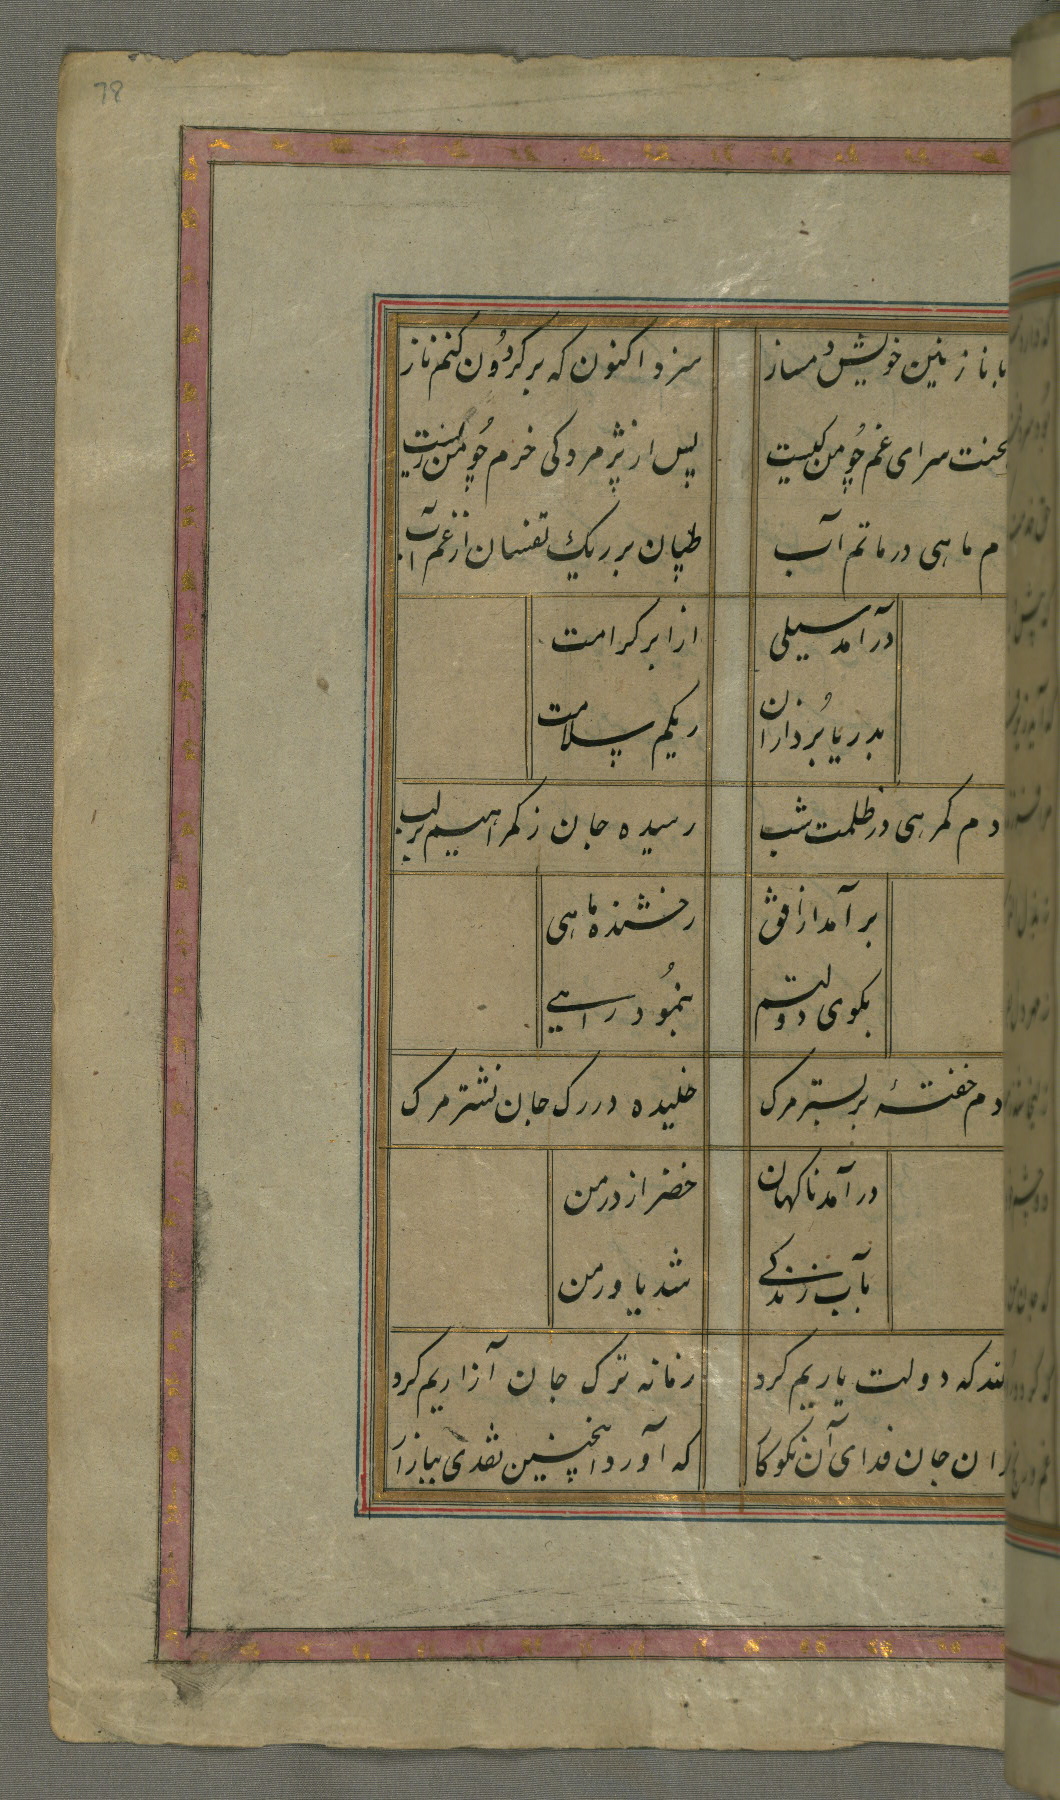 78
با نازنین خویش دمساز سزد اکنون که بر گردون کنم ناز
محنت سرای غم چو من کیست پس از پژمردکی خرم چو من زیست
م ماهی در ماتم آب طپان بر ریک تفسان از غم آب
درآمد سیلی از ابر کرامت
بدریا برد ازان ریکم بسلامت
دم کمرهی در ظلمت شب رسیده جان ز کمراهیم بر لب
برآمد از افق رخشنده ماهی
بکوی دولتم بنمود راهی
دم خفته بر بستر مرک خلیده در رک جان نشتر مرک
درآمد ناکهان خضر از در من
بآب زندکی شد یاور من
که دولت یاریم کرد زمانه ترک جان آزاریم کرد
ان جان فدای آن نکوکا که آورد اینچنین نقدی ببازار